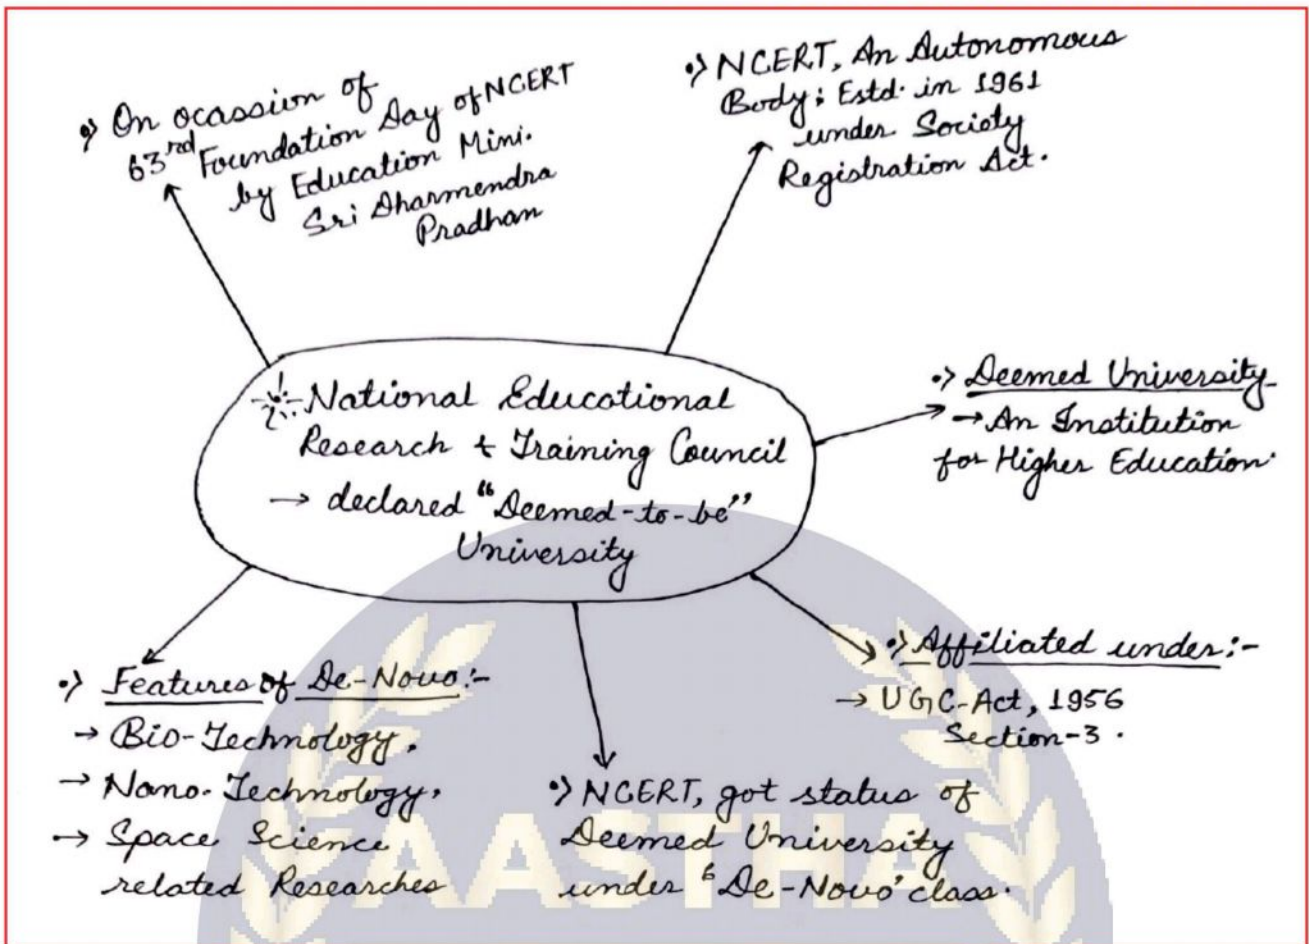 •> On ocassion of
63rd Foundation Day of NCERT
by Education Mini.
Sri Dharmendra
Pradhan
•> NCERT, An Autonomous
Body; Estd. in 1961
under Society
Registration Act.
National Educational
Research & Training Council
→ declared "Deemed-to-be"
University
•> Deemed University
→ An Institution
for Higher Education.
•> Affiliated under:-
→ UGC-Act, 1956
Section-3.
•> Features of De-Novo:-
→ Bio-Technology,
→ Nano-Technology,
→ Space Science
related Researches
•> NCERT, got status of
Deemed University
under 'De-Novo' class.
AASTHA